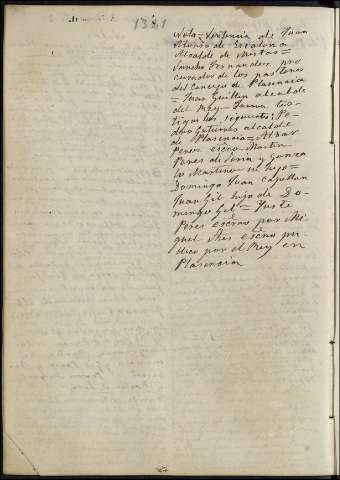 1381
Nota = Sentencia de Juan
Alfonso de Escalona
Alcalde de Mestas =
Sancho Fernandez, pro
curador de los pastores
del concejo de Plasencia
= Juan Guillen alcalde
del Rey = Fueron tes-
tigos los siguientes: Pe-
dro Gutierrez alcalde
de Plasencia = Alvar
Perez escno = Martin
Perez de Soria y Gonza
lo Martinez su hijo =
Domingo Juan capellan
Juan Gil hijo de Do-
mingo Gil = Yuste
Perez escno por Mi-
guel escno pu-
blico por el Rey en
Plasencia